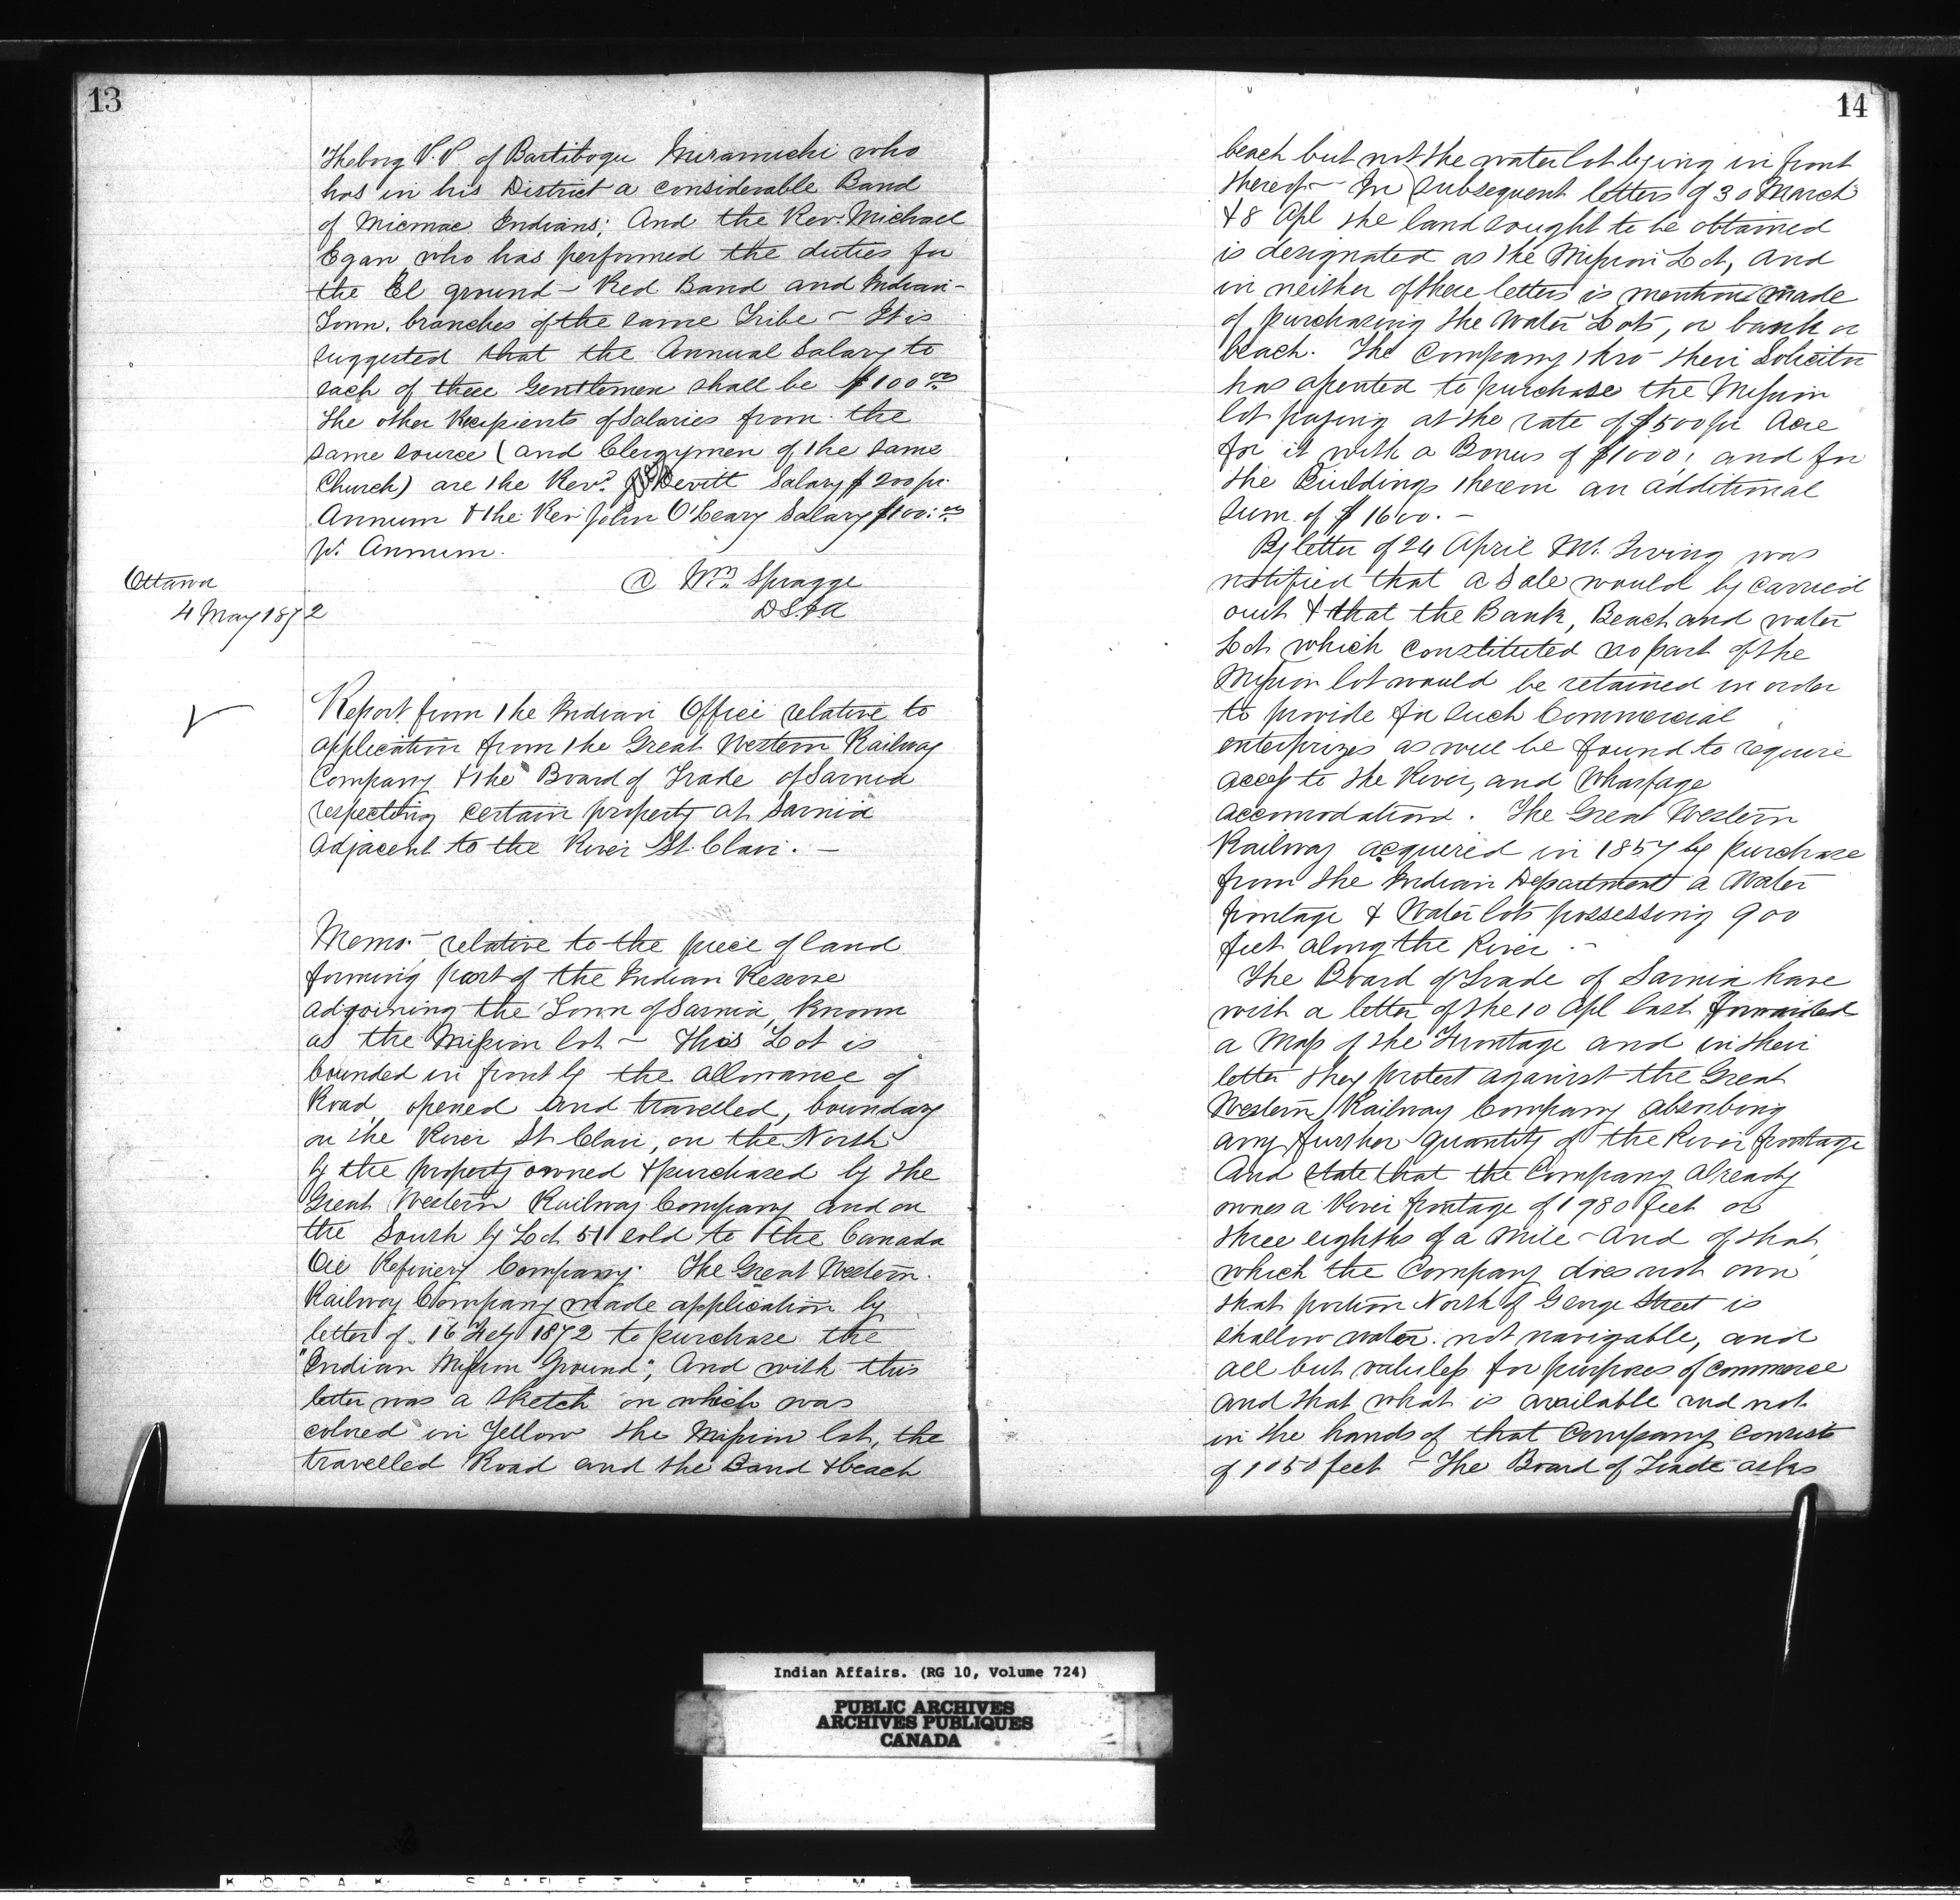 13
Theborg P.P. of Bartibogu Miramichi who
has in his District a considerable Band
of Micmac Indians; And the Rev. Michael
Egan who has performed the duties for
the El ground - Red Band and Indian-
Town, branches of the same Tribe - It is
suggested that the Annual Salary to
each of these Gentlemen shall be $100.00
The other Recipients of Salaries from the
same source (and Clergymen of the same
Church) are the Revd. Devitt Salary $200 pr.
Annum & the Rev John O'Leary Salary $100:00
pr. Annum.
Ottawa
4 May 1872
Wm Spragge
DSIA
Report from the Indian Office relative to
application from the Great Western Railway
Company & the Board of Trade of Sarnia
respecting certain property at Sarnia
Adjacent to the River St. Clair. -
Memo. - relative to the piece of land
forming part of the Indian Reserve
adjoining the Town of Sarnia, known
as the Mission lot - This Lot is
bounded in front by the allowance of
Road, opened and travelled, boundary
on the River St Clair, on the North
by the property owned & purchased by the
Great Western Railway Company and on
the South by Lot 51 sold to the Canada
Oil Refinery Company. The Great Western
Railway Company made application by
letter of 16 Feby 1872 to purchase the
"Indian Mission Ground", And with this
letter was a sketch on which was
colored in Yellow the Mission lot, the
travelled Road and the Band & beach
14
beach but not the water lot lying in front
thereof - In subsequent letters of 30 March
& 8 Apl the land sought to be obtained
is designated as the Mission Lot, and
in neither of these letters is mention made
of purchasing the Water Lots, or bank or
beach. The Company thro- their Solicitor
has assented to purchase the Mission
lot paying at the rate of $500 pr Acre
for it with a Bonus of $1000; and for
the Buildings thereon an additional
Sum of $1600. -
By letter of 24 April Mr. Irving was
notified that a Sale would by carried
out & that the Bank, Beach and water
Lot which constituted no part of the
Mission lot would be retained in order
to provide for such Commercial
enterprizes as will be found to require
access to the River, and Wharfage
accomodation. The Great Western
Railway acquired in 1857 by purchase
from the Indian Department a Water
frontage & Water lots possessing 900
feet along the River. -
The Board of Trade of Sarnia have
with a letter of the 10 Apl last forwarded
a Map of the Frontage and in their
letter they protest against the Great
Western Railway Company absorbing
any further quantity of the River frontage
And state that the Company already
owns a River frontage of 1980 feet or
three eighths of a Mile - And of that
which the Company does not own
that portion North of George Street is
shallow water not navigable, and
all but valuless for purposes of commerce
and that what is available and not
in the hands of that Company consists
of 1050 feet - The Board of Trade asks
Indian Affairs. (RG 10, Volume 724)
PUBLIC ARCHIVES
ARCHIVES PUBLIQUES
CANADA